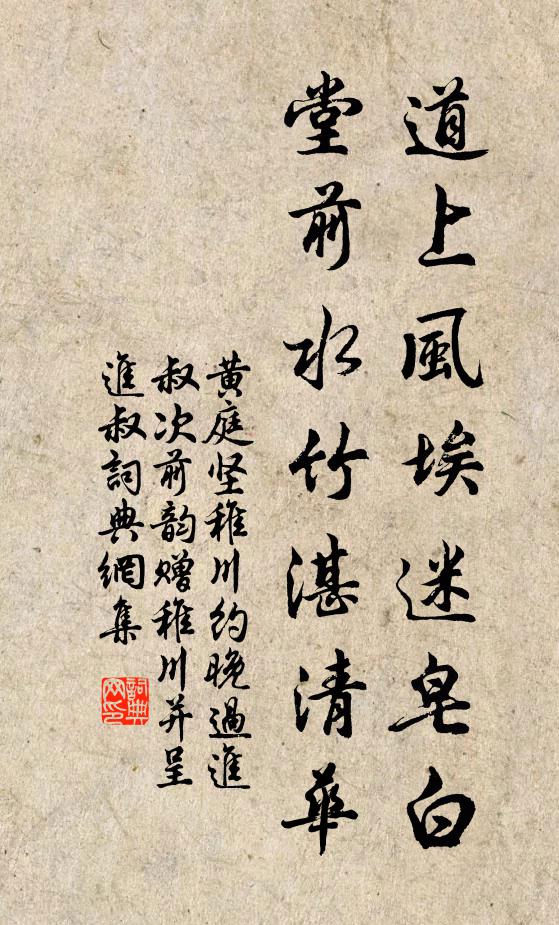 道上風埃迷皂白
堂前水竹湛清華
黄庭坚稚川约晚過進
叔次前韵赠稚川并呈
進叔詞典網集
詞典
网印